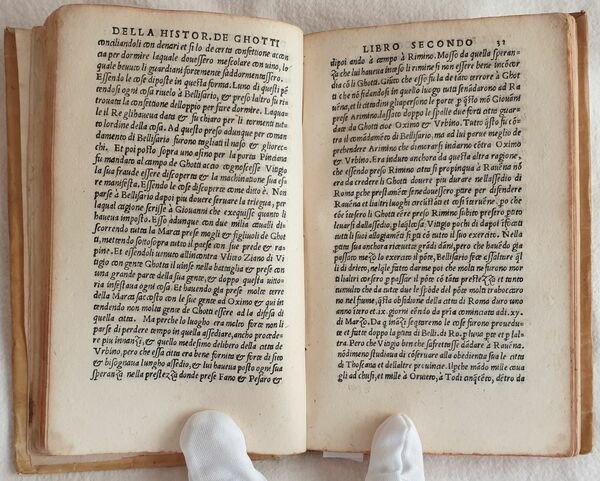 DELLA HISTOR. DE GHOTTI
conciliandoli con denari et si lo de certa confettione accon
cia per dormire laquale douessero mescolare con uino, lo
quale beuuto li guardiani fortemente saddormentassero.
Essendo le cose disposte in questa forma. Luno di questi pẽ
tendosi ogni cosa riuelo à Bellisario, & preso laltro fu ri
trouata la confettione delloppio per fare dormire. Laqua
le il Re glihaueua data & fu chiaro per li tormenti tutto
lordine della cosa. Ad questo preso adunque per comanda
mento di Bellisario furono tagliati il naso & gliorec
chi. Et poi posto sopra uno asino per la porta Pinciana
fu mandato al campo de Ghotti accio cognoscesse Vitigio
la sua fraude essere discoperta & la machinatione sua esse
re manifesta. Essendo le cose discoperte come ditto è. Non
parse à Bellisario dapoi piu douere seruare la triegua, per
laqual cagione scrisse à Giouanni che exequisse quanto li
haueua imposto. Esso adunque con due milia caualli di
scorrendo tutta la Marca prese mogli & figliuoli de Gho
ti, mettendo sottosopra tutto il paese con sue prede & ra
pine. Et essendoli uenuto allincontra Vliteo Ziano di Vi
tigio con gente Ghotta il uinse nella battaglia & prese con
una grande parte della sua gente, & doppo questa uittoria
infestaua ogni cosa. Et hauendo gia prese molte terre
della Marca saccosto con le sue gente ad Oximo & qui in
tendendo non molta gente de Ghotti essere ad la difesa di
quella citta. Ma perche lo luogho era molto forte non li
parse di perdere tempo in quella assediare, ancho procede
re piu innanzi, & quello medesimo delibero della citta de
Vrbino, pero che essa citta era bene fornita & forte di sito
& bisognaua lungho assedio, & lui haueua posto ogni sua
speranza nella prestezza donde prese Fano & Pesaro &
LIBRO SECONDO 31
dipoi ando à campo à Rimino. Mosso da quella speran-
za che lui haueua inteso li rimine si non essere bene incor
dia cõ li Ghotti. Grãde che esse fu la de tãto terrore à Ghot
ti che nõ fidandosi in quello luogo tutti sẽnãdarono ad Ra
uẽna, et li cittadini gliapersono le porte pqsto mõ Giouãni
prese Arimino, lessato doppo le spelle due forti citta guar
date da Ghotti cioe Oximo & Vrbino. Tutto qsto fu cõ
tra il comãdamẽto di Bellisario, ma ad lui parue meglio di
prehendere Arimino che dimorarsi indarno cõtra Oximo
& Vrbino. Era induto anchora da questa altra ragione,
che essendo preso Rimino citta si propinqua à Rauẽna nõ
era da credere li Ghotti douere piu durare nellassedio di
Roma piu prestamẽte sene douessono partire per difendere
Rauẽna et li altri luoghi circũstãti et cosi teruẽne, po che
cõe ĩtesero li Ghotti eẽre preso Rimino subito presero ptito
leuarsi dallassedio, p laqlcosa. Vitigio pochi di anchora posti
tutti li suoi allogiamẽti fa põti con tutto suo exercito. Nella
partita sua anchora riceuette grãdi dãni, pero che hauẽdo gia
passato mezo lo exercito il põte, Bellisario fece assaltare ql
li di drieto, nelqle fatto darme poi che molti ne furono mor
ti laltri cercando di passare il põte cõ tãta prestezza et cõten
tamẽto che da tutte due le sponde del põte molti traboccaro
no nel fiume, qsta obsidione della citta di Roma duro uno
anno itero et .ix. giorni eẽndo pria cominciata adi .xx.
di Marzo. Da q inãzi seguteremo le cose furono procedu
te et fatte doppo la ptita di Belli. di Ro. p luno pte et p lal
tra. Pero che Vitigio bẽn che safrettasse dãdare à Rauẽna.
nõdimeno studiaua di cõseruare alla obedientia sua le citta
di Thoscana et dellaltre prouincie. Il pche mãdo mille coua
gli ad chusi, et mille à Oruieto, à Todi cinqcẽto, dẽtro da